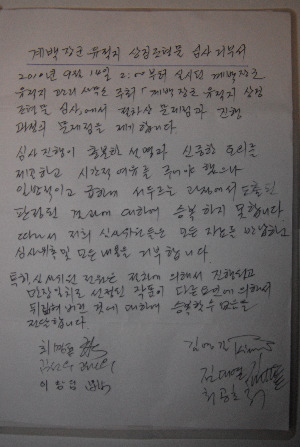 계백장군 유적지 상징조형물 심사 거부서
2010년 9월 14일 2:00부터 실시된 계백장군
유적지 관리사무소 주최 "계백장군 유적지 상징
조형물 심사"에서 절차상 문제점과 진행
과정의 문제점을 제기합니다
심사진행이 충분한 설명과 신중한 토의를
제공하고 시간적 여유를 주어야 했으나
일방적이고 급하게 서두르는 과정에서 도출된
판정된 결과에 대하여 승복 하지 못합니다
따라서 저희 심사위원들은 모든 자료를 반납하고
심사위촉 및 모든 내용을 거부합니다
특히 심사위원 전원은 절차에 의해서 진행되고
만장일치로 선정된 작품이 다른 요인에 의해서
뒤집혀 버린 것에 대하여 승복할 수 없음을
전달합니다
최
김
이
김대열
최